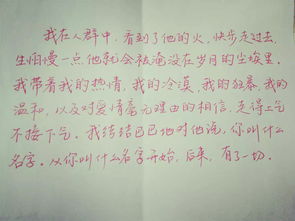 我在人群中，看到了他的火，快步走过去，
生怕慢一点他就会被淹没在岁月的尘埃里。
我带着我的热情，我的冷漠，我的狂暴，我的
温和，以及对爱情毫无理由的相信，走得上气
不接下气。我结结巴巴地对他说，你叫什么
名字。从你叫什么名字开始，后来，有了一切。